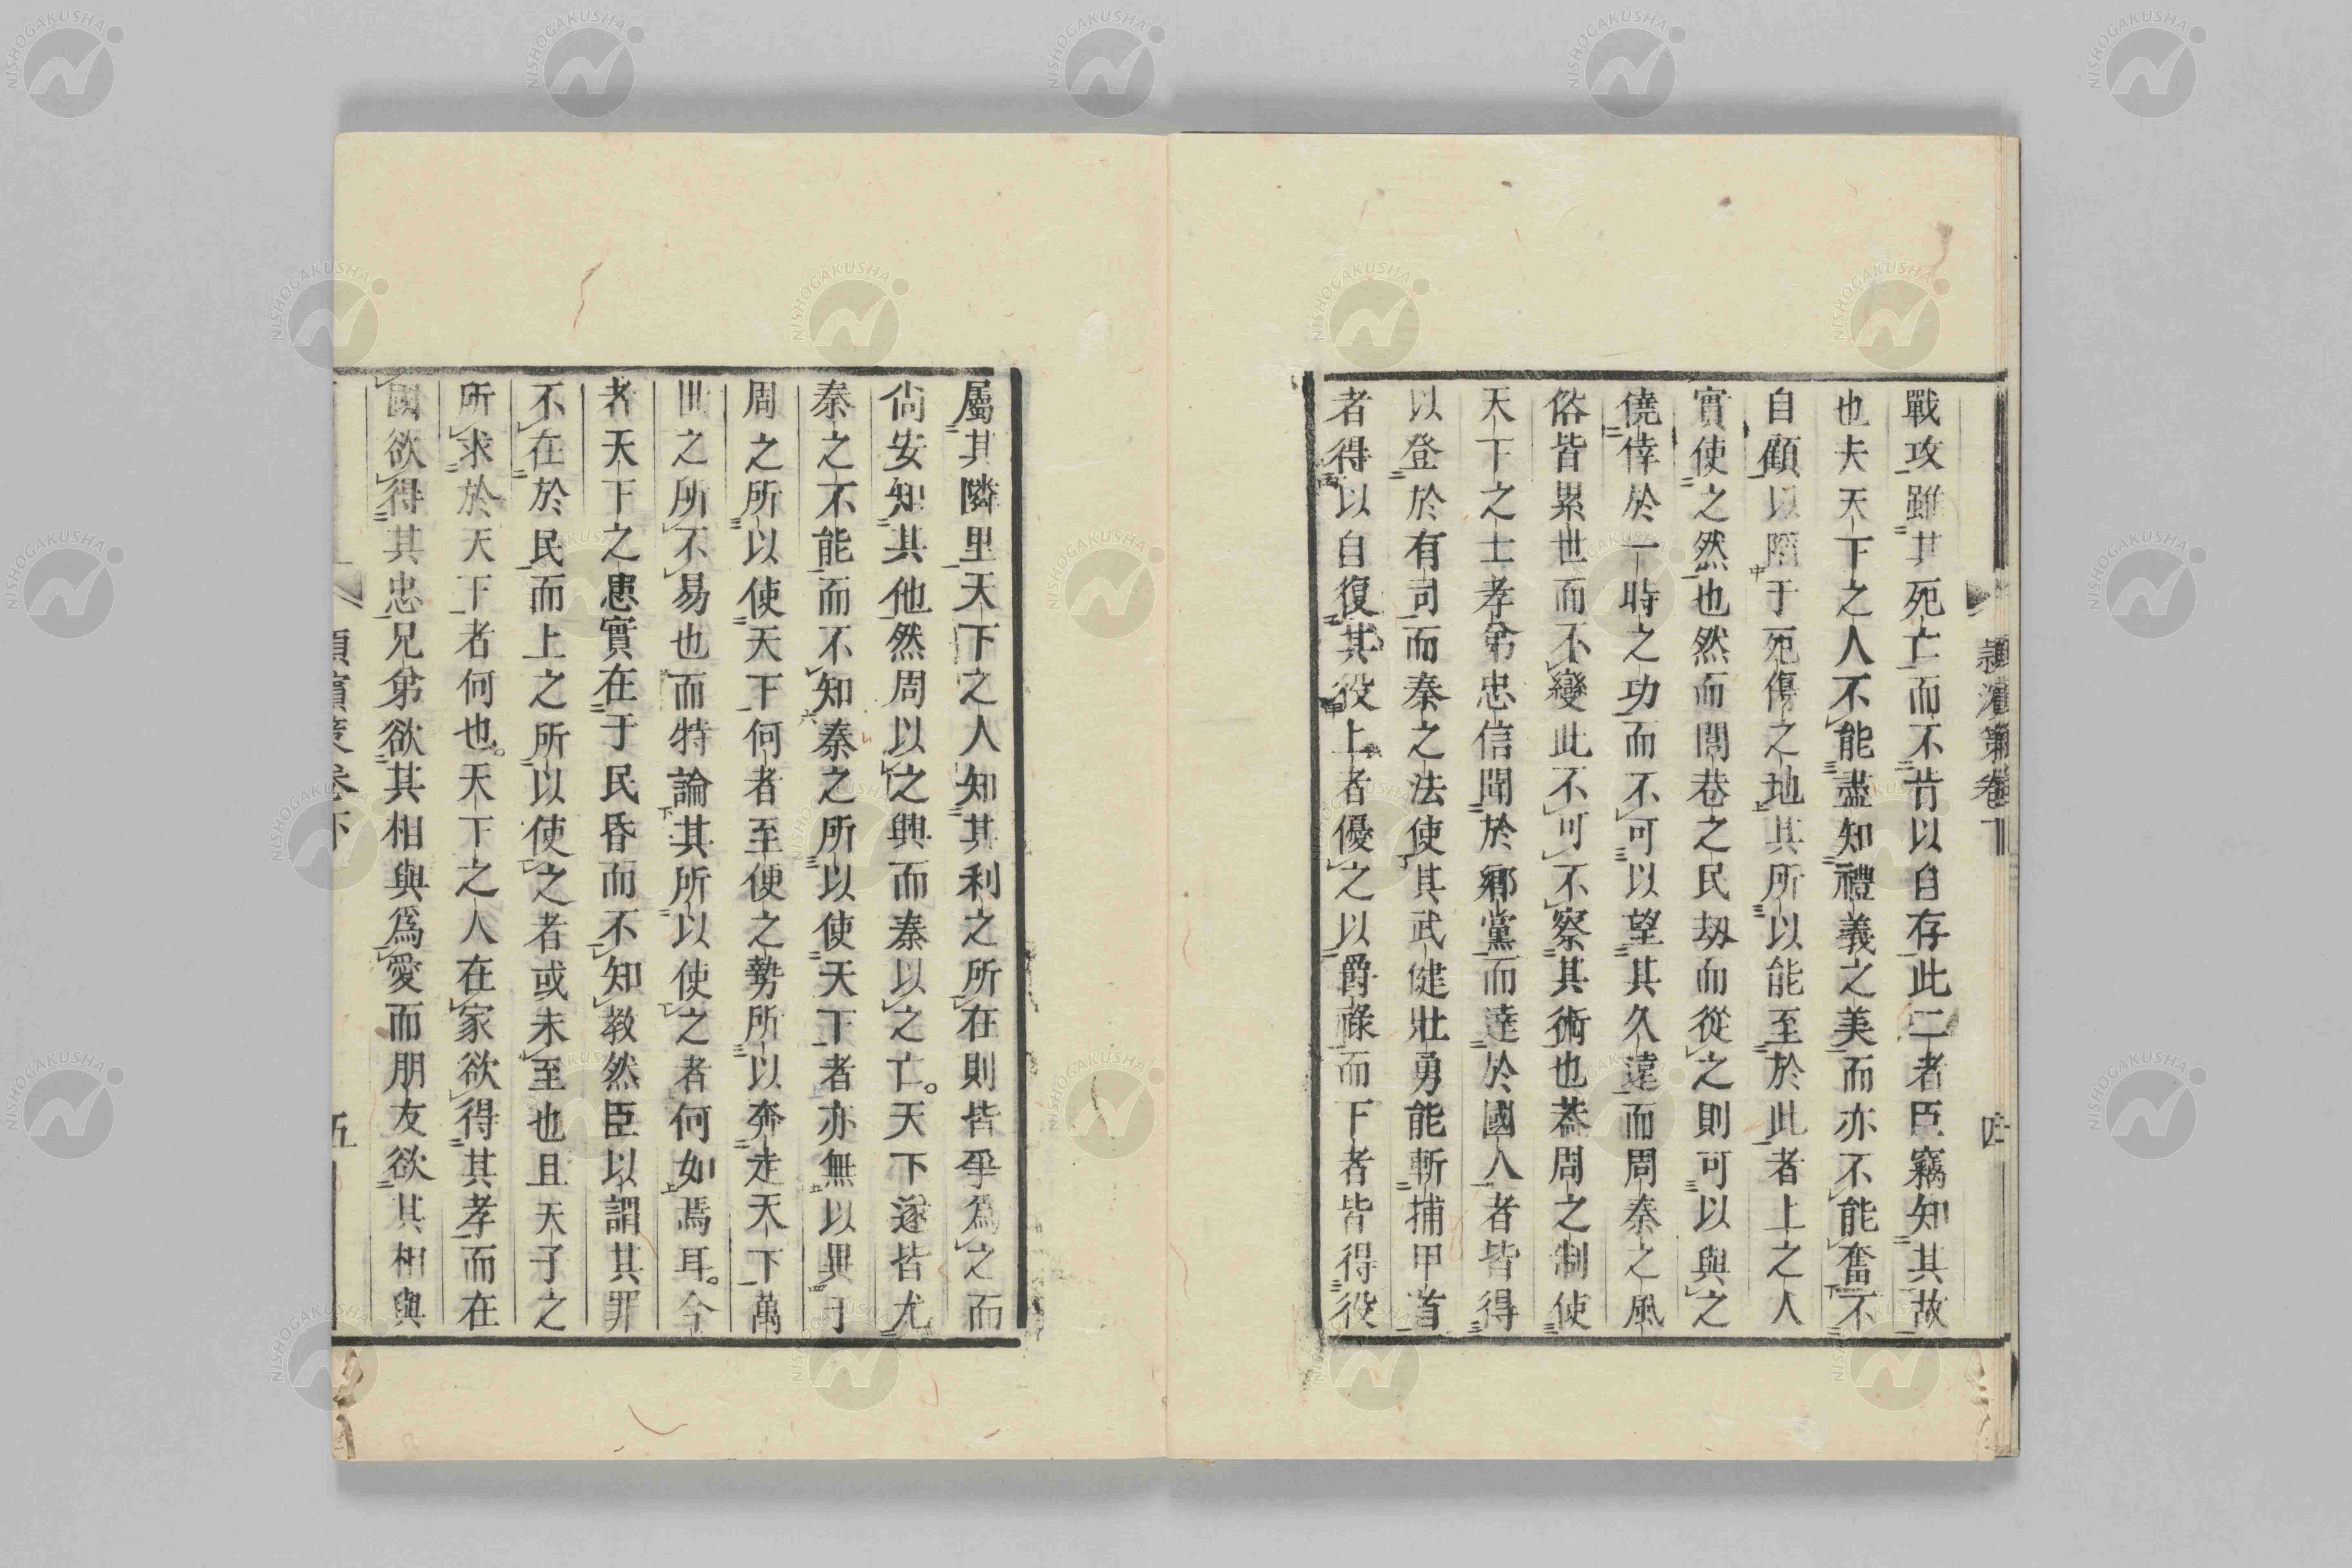 戰攻雖其死亡而不昔以自存此二者臣竊知其故
也夫天下之人不能盡知禮義之美而亦不能奮不
自顧以陷于死傷之地其所以能至於此者上之人
實使之然也然而閭巷之民刼而從之則可以與之
僥倖於一時之功而不可以望其久遠而周秦之風
俗皆累世而不變此不可不察其術也葢周之制使
天下之士孝弟忠信聞於鄉黨而達於國人者皆得
以登於有司而秦之法使其武健壯勇能斬捕甲首
者得以自復其役上者優之以爵祿而下者皆得役
屬其隣里天下之人知其利之所在則皆爭爲之而
尙安知其他然周以之興而秦以之亡。天下遂皆尤
秦之不能而不知秦之所以使天下者亦無以異于
周之所以使天下何者至便之勢所以奔走天下萬
世之所不易也而特論其所以使之者何如焉耳。今
者天下之患實在于民昏而不知教然臣以謂其罪
不在於民而上之所以使之者或未至也且天子之
所求於天下者何也。天下之人在家欲得其孝而在
國欲得其忠兄弟欲其相與爲愛而朋友欲其相與
潁濱策卷下
四
五
NISHOGAKUSHA